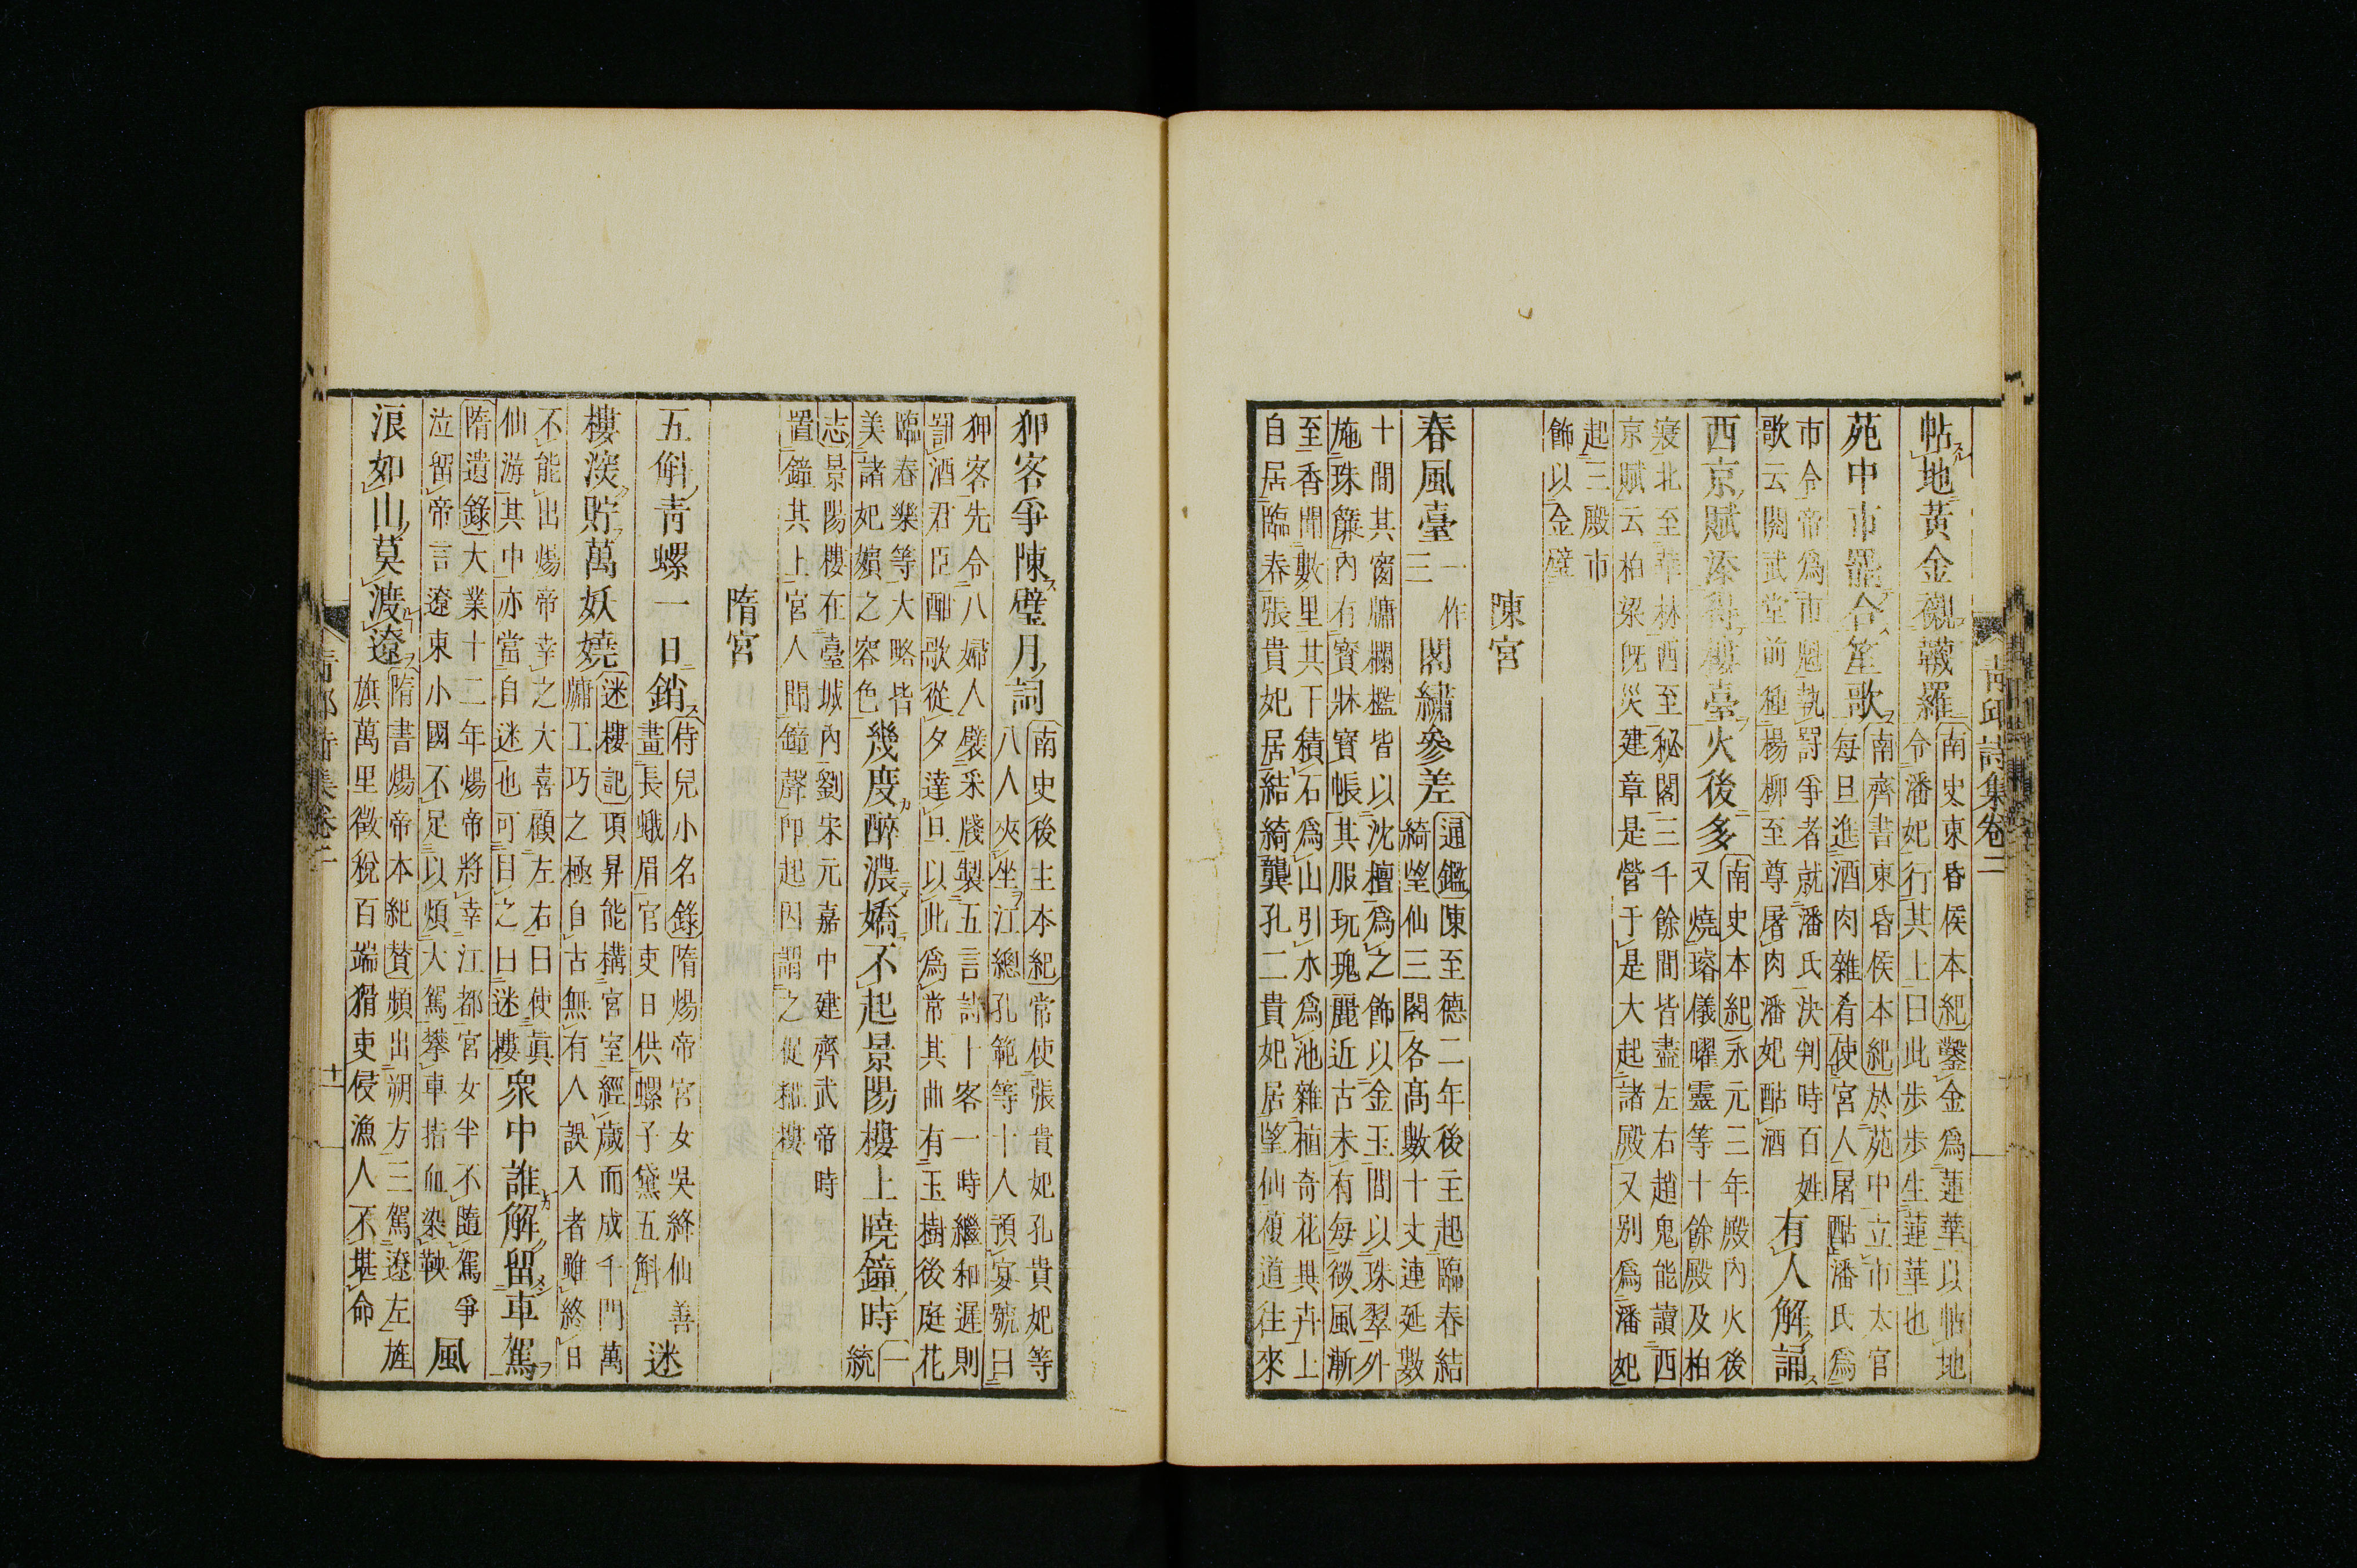 靑邱詩集卷二
帖地黃金襯韈羅
南史東昏侯本紀鑿金爲蓮華以帖地
令潘妃行其上曰此歩歩生蓮華也
苑中市罷合笙歌
南齊書東昏侯本紀於苑中立市太官
每旦進酒肉雜肴使宮人屠酤潘氏爲
市令帝爲市魁執罸爭者就潘氏決判時百姓
歌云閱武堂前種楊柳至尊屠肉潘妃酤酒
有人解誦
西京賦添得樓臺火後多
南史本紀永元三年殿內火後
又燒璿儀曜靈等十餘殿及柏
寝北至華林西至秘閣三千餘間皆盡左右趙鬼能讀西
京賦云柏梁旣災建章是營于是大起諸殿又別爲潘妃
起三殿市
飾以金璧
陳宮
春風臺一作三閣繡參差
通鑑陳至德二年後主起臨春結
綺望仙三閣各高數十丈連延數
十間其窗牖欄檻皆以沈檀爲之飾以金玉間以珠翠外
施珠簾內有寳牀寳帳其服玩瑰麗近古未有每微風漸
至香聞數里其下積石爲山引水爲池雜植奇花異卉上
自居臨春張貴妃居結綺龔孔二貴妃居望仙複道往來
狎客爭陳璧月詞
南史後主本紀常使張貴妃孔貴妃等
八人夾坐江總孔範等十人預宴號曰
狎客先令八婦人襞采牋製五言詩十客一時繼和遲則
罰酒君臣酣歌從夕達旦以此爲常其曲有玉樹後庭花
臨春樂等大略皆
美諸妃嬪之容色
幾度醉濃嬌不起景陽樓上曉鐘時
一統
志景陽樓在臺城內劉宋元嘉中建齊武帝時
置鐘其上宮人聞鐘聲卽起因謂之促粧樓
隋宮
五斛靑螺一日銷
侍兒小名錄隋煬帝宮女吳絳仙善
畫長蛾眉官吏日供螺子黛五斛
迷
樓深貯萬妖嬈
迷樓記項昇能構宮室經歲而成千門萬
牖工巧之極自古無有人誤入者雖終日
不能出煬帝幸之大喜顧左右曰使眞
仙游其中亦當自迷也可目之曰迷樓
衆中誰解留車駕
隋遺錄大業十二年煬帝將幸江都宮女半不隨駕爭
泣留帝言遼東小國不足以煩大駕攀車指血染鞅
風
浪如山莫渡遼
隋書煬帝本紀贊頻出朔方三駕遼左旌
旗萬里徵稅百端猾吏侵漁人不堪命
靑邱詩集卷二
十一